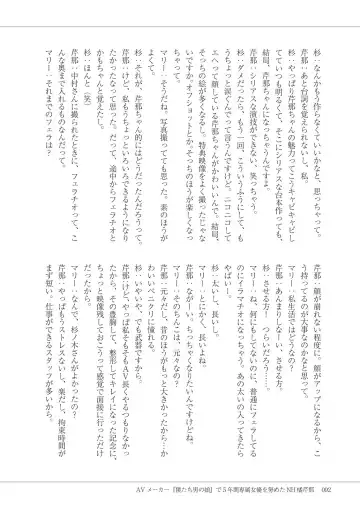 杉：なんかもう作らなくていいかなと、思っちゃって。
芹那：あと台詞を覚えられないし、私。
杉：やっぱり芹那ちゃんの魅力ってこうキャピキャピし
てていつも明るくて、そこにシリアスな台本作っても、
結局、芹那ちゃんになっちゃうんですよ。
芹那：シリアスな演技ができない、笑っちゃう。
杉：ダメだったら、もう一回、こういうふうにして、も
うちょっと涙ぐんでって言うんですけど、ニコニコして
エヘって顔してる芹那ちゃんがかわいいんで。結局、
そっちの絵が多くなるし。特典映像をよく撮ったじゃな
いですか。オフショットとか。そっちのほうが楽しくなっ
ちゃって。
マリー：そうだね、写真撮ってても思った。素のほうが
よくて。
杉：それが、芹那ちゃん的にはどうだったんだろうって。
芹那：けど、私もうちょっといろいろできるようになり
たかったなって思ってた。だって、途中からフェラチオと
かもちゃんと覚えたし。
杉：ほんと（笑）
芹那：中村さんに撮られたときに、フェラチオって、こ
んな奥まで入れるものなんだって。
マリー：それまでのフェラは？
芹那：顔が崩れない程度に。顔がアップになるから、こ
う持ってるのが大事なのかなと思って。
マリー：私生活ではどうなの？
芹那：あんまりしなーい、させる方。
杉：させる方？つらいだろう…？
マリー：ね、何にもしてないのに、普通にフェラしてる
のにイラマチオになっちゃう。あの太いの入ってきたら
やばいし。
杉：太いし、長いし。
マリー：とにかく、長いよね。
芹那：ながーい。ちっちゃくなりたいんですけどね。
マリー：そのちんこは、元々なの？
芹那：元々だし、昔のほうがもっと大きかったから…か
わいいペニクリに憧れる。
杉：いやいや、でも武器ですから。
芹那：けど、やっぱ私そもそもAV長くやるつもりもなかっ
たから。その豊胸して、整形してキレイになった記念に、
ちょっと映像残しておこうって感覚で面接に行っただけ
だったから。
マリー：なんで、杉ノ木さんがよかったの？
芹那：やっぱもうストレスないし、楽だし、拘束時間が
まず短い。仕事ができるスタッフが多いから。
AVメーカー『僕たち男の娘』で5年間専属女優を努めたNH橘芹那　002